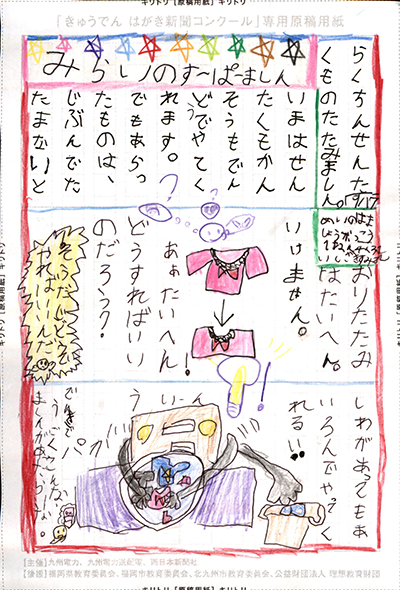 キリトリ【原稿用紙】キリトリ
「きゅうでん はがき新聞コンクール」専用原稿用紙
みらいのすーぱーましん
らくちんせんた
くものたたみましん。
いまはせん
たくもかん
そうもでん
どうでやてく
れます。
でもあらっ
たものは、
じぶんでた
たまないと
いけません。
おりたたみ
はたいへん。
あぁたいへん!
どうすればいい
のだろう?
そうだ!
やればいいんだ
しわがあってもあ
いろんでやってく
れるい!!
うぃーん
パカ
でんきで
うごくこんな
ましんがあったらな。
【主催】九州電力、九州電力送配電、西日本新聞社
【後援】福岡県教育委員会、福岡市教育委員会、北九州市教育委員会、公益財団法人 理想教育財団
キリトリ【原稿用紙】キリトリ